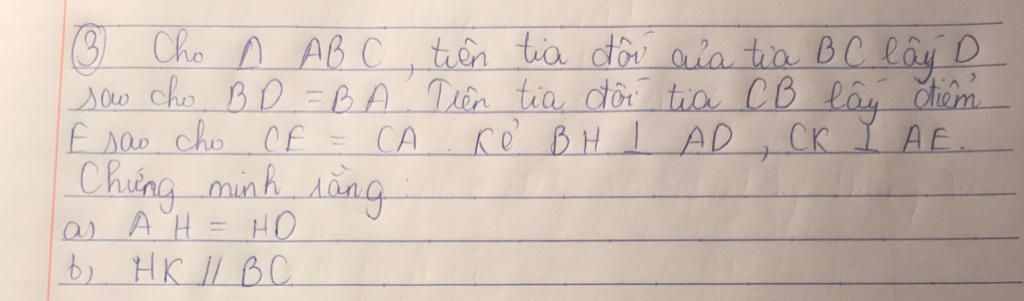 ③ Cho △ ABC, trên tia đối của tia BC lấy D
sao cho BD = BA. Trên tia đối tia CB lấy điểm
E sao cho CE = CA. Kẻ BH ⊥ AD, CK ⊥ AE.
Chứng minh rằng:
a) AH = HD
b) HK // BC